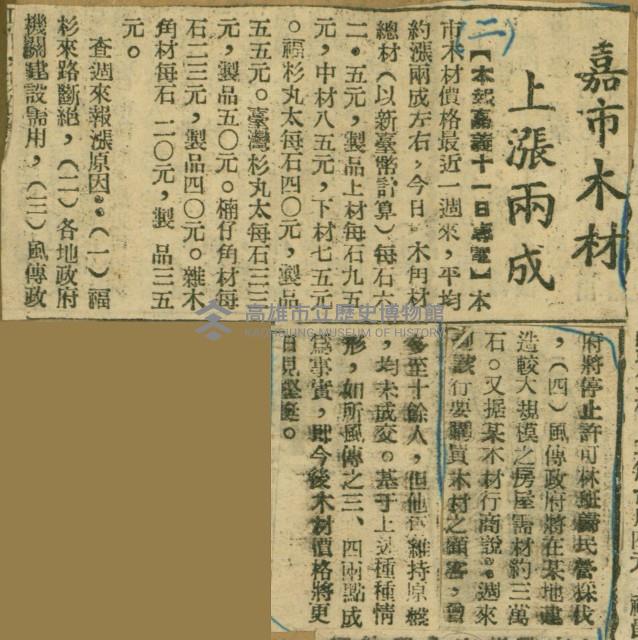 嘉市木材
上漲兩成
(二)
【本報嘉義十一日專電】本
市木材價格最近一週來,平均
約漲兩成左右,今日,木角材
總材(以新臺幣計算)每石六
二.五元,製品上材每石九五
元,中材八五元,下材七五元
。福杉丸太每石四〇元,製品
五五元。臺灣杉丸太每石三三
元,製品五〇元。楠仔角材每
石二三元,製品四〇元。雜木
角材每石二〇元,製品三五
元。
查週來報漲原因:(一)福
杉來路斷絕,(二)各地政府
機關建設需用,(三)風傳政
府將停止許可林班歸民營採伐
,(四)風傳政府將在某地建
造較大規模之房屋需材約三萬
石。又据某木材行商說:週來
到該行要購買木材之顧客,曾
多至十餘人,但他們維持原盤
,均未成交。基于上述種種情
形,如所風傳之三、四兩點成
為事實,則今後木材價格將更
日見堅挺。
高雄市立歷史博物館
KAOHSIUNG MUSEUM OF HISTORY